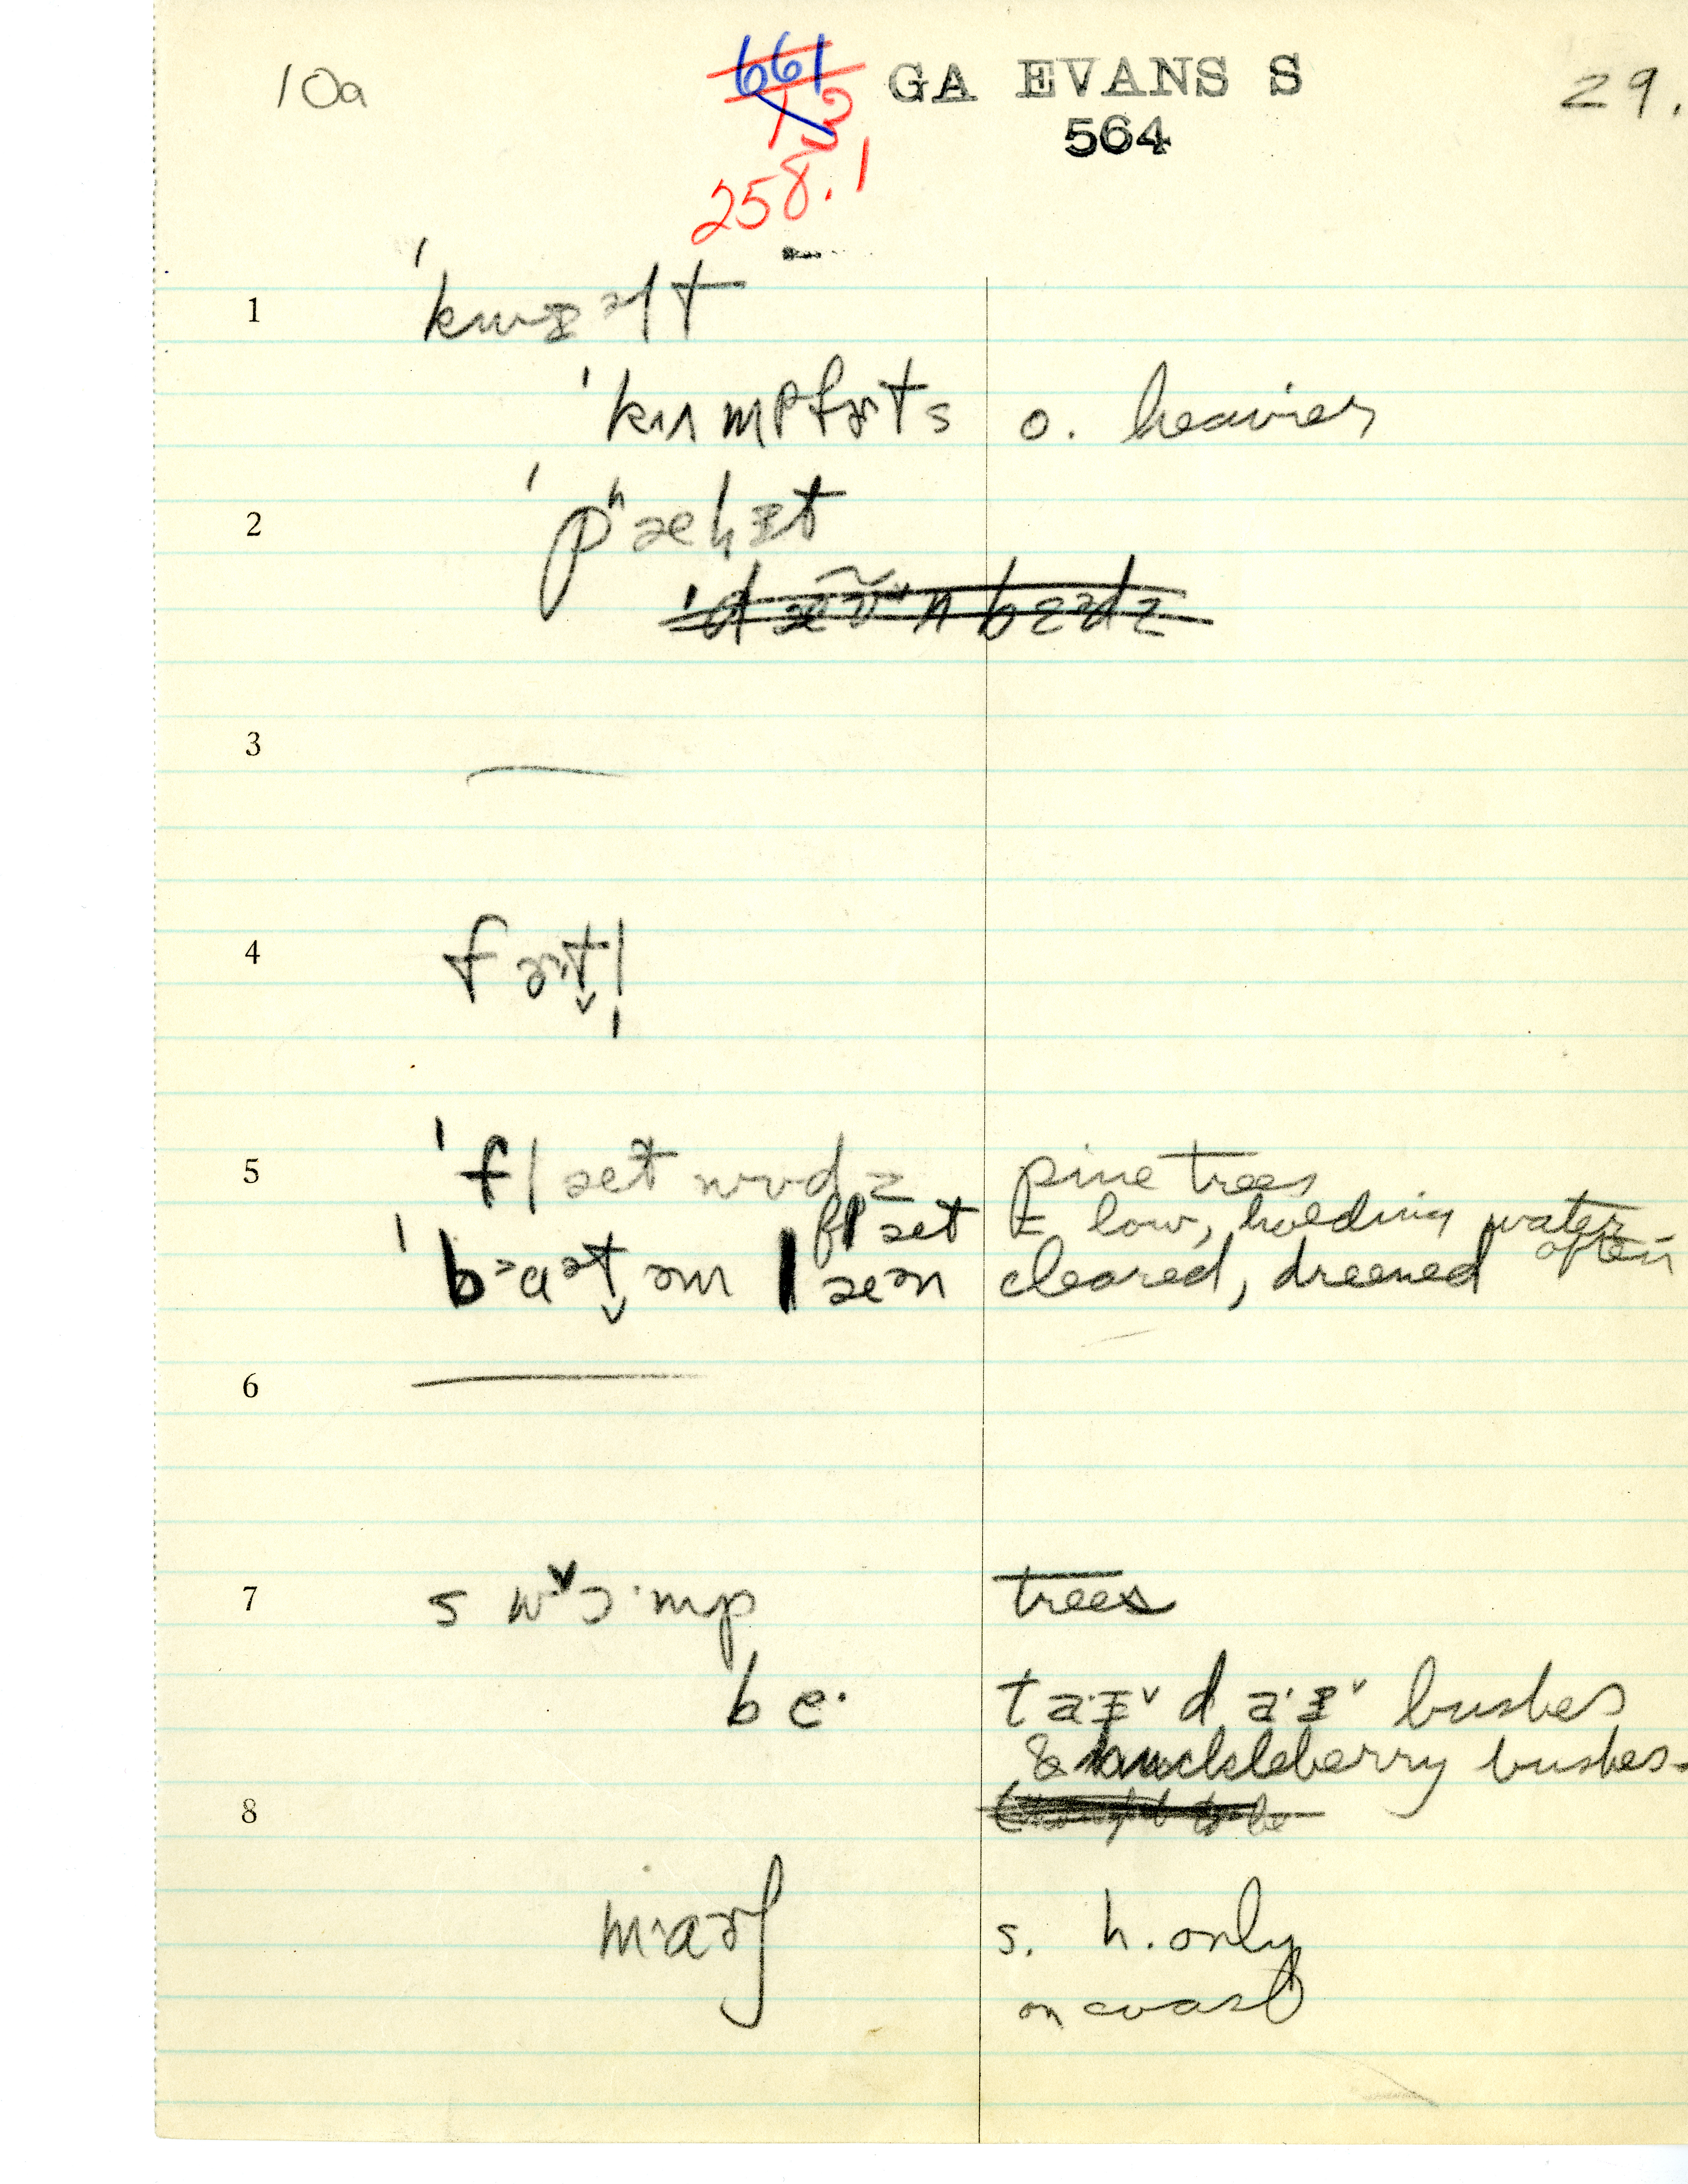 10a 661 GA EVANS S 29.
13 564
258.1
1 ˈkwɪəlt
ˈkʌmfɚts o. heavier
2 ˈpʰæḷɪt
3 —
4 fɚt̬l̩
5 ˈflætwʊdz pine trees
flæt & low, holding water
often
ˈbɒɑət̬əm læən cleared, dreened
6 —
7 swɔ˞·mp trees
be· taːɪ˅ daːɪ˅ bushes
& huckleberry bushes
8
mɑəʃ s. h. only
on coast